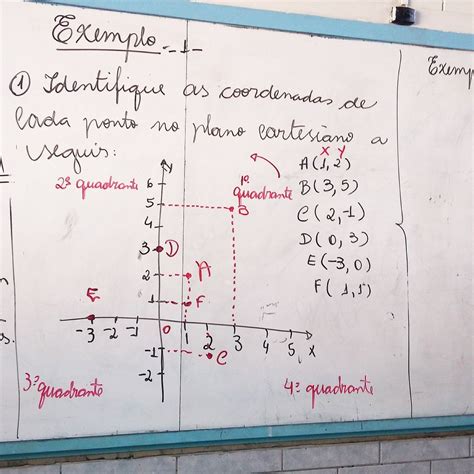 Exemplo
① Identifique as coordenadas de
cada ponto no plano cartesiano a
seguir:
x y
A(1,2)
B(3,5)
C(2,-1)
D(0,3)
E(-3,0)
F(1,1)
2º quadrante
1º
quadrante
y
6
5
B
4
3 D
2 A
1 F
E
-3 -2 -1 0 1 2 3 4 5 x
-1 C
-2
3º quadrante
4º quadrante
Exemp